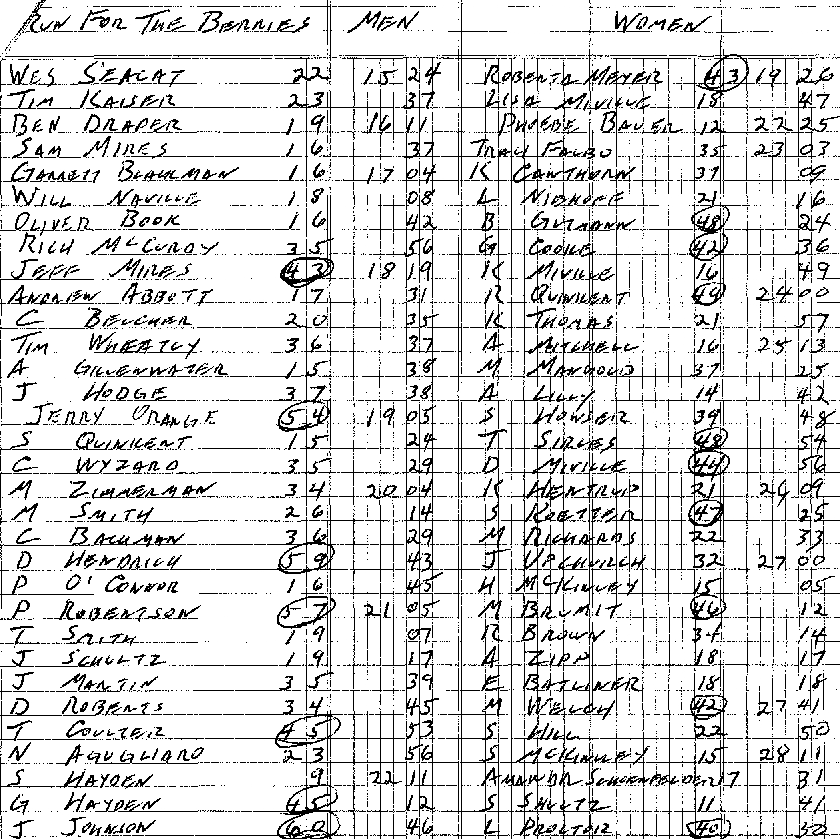 RUN FOR THE BERRIES MEN WOMEN
WES SEACAT 22 15 24 ROBERTA MEYER 43 19 26
TIM KAISER 23 37 LISA MIVILLE 18 47
BEN DRAPER 19 16 11 PHOEBE BAUER 12 22 25
SAM MIRES 16 37 TRACI FALBO 35 23 03
GARRETT BLACKMAN 16 17 04 K CAWTHORN 37 09
WILL NAVILLE 18 08 L NIEHOFF 21 16
OLIVER BOOK 16 42 B GUTMANN 48 24
RICH MCCURDY 35 56 G COOKE 42 36
JEFF MIRES 43 18 19 K MIVILLE 16 49
ANDREW ABBOTT 17 31 R QUINKERT 49 24 00
C BELCHER 20 35 K THOMAS 21 57
TIM WHEATLY 36 37 A MITCHELL 16 25 13
A GILLENWATER 15 38 M MANGOLD 37 25
J HODGE 37 38 A LILLY 14 42
JERRY ORANGE 54 19 05 S HOWSER 39 48
S QUINKERT 15 24 T SIRLES 48 54
C WYZARD 35 29 D MIVILLE 44 56
M ZIMMERMAN 34 20 04 K HENTRUP 21 26 09
M SMITH 26 14 S ROETTER 47 25
C BACHMAN 36 29 M RICHARDS 22 33
D HENDRICH 59 43 J UPCHURCH 32 27 00
P O'CONNOR 16 45 H MCKINLEY 15 05
P ROBERTSON 57 21 05 M BRUMIT 46 12
T SMITH 19 07 R BROWN 34 14
J SCHULTZ 19 17 A ZIPP 18 17
J MARTIN 35 39 E BATLINER 18 18
D ROBERTS 34 45 M WELCH 42 27 41
T COULTER 45 53 S HILL 22 50
N AGUGLIARO 23 56 S MCKINLEY 15 28 11
S HAYDEN 9 22 11 AMANDA SCHOENFELDER 17 31
G HAYDEN 45 12 S SHULTZ 11 41
J JOHNSON 60 46 L PROCTOR 40